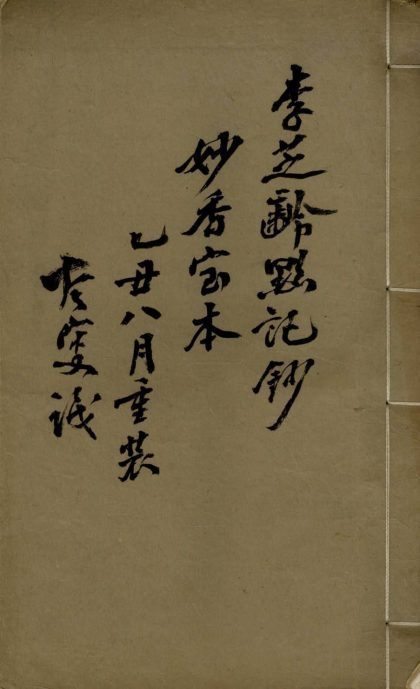 李芝齡黔記鈔
妙香室本
乙丑八月重裝
識